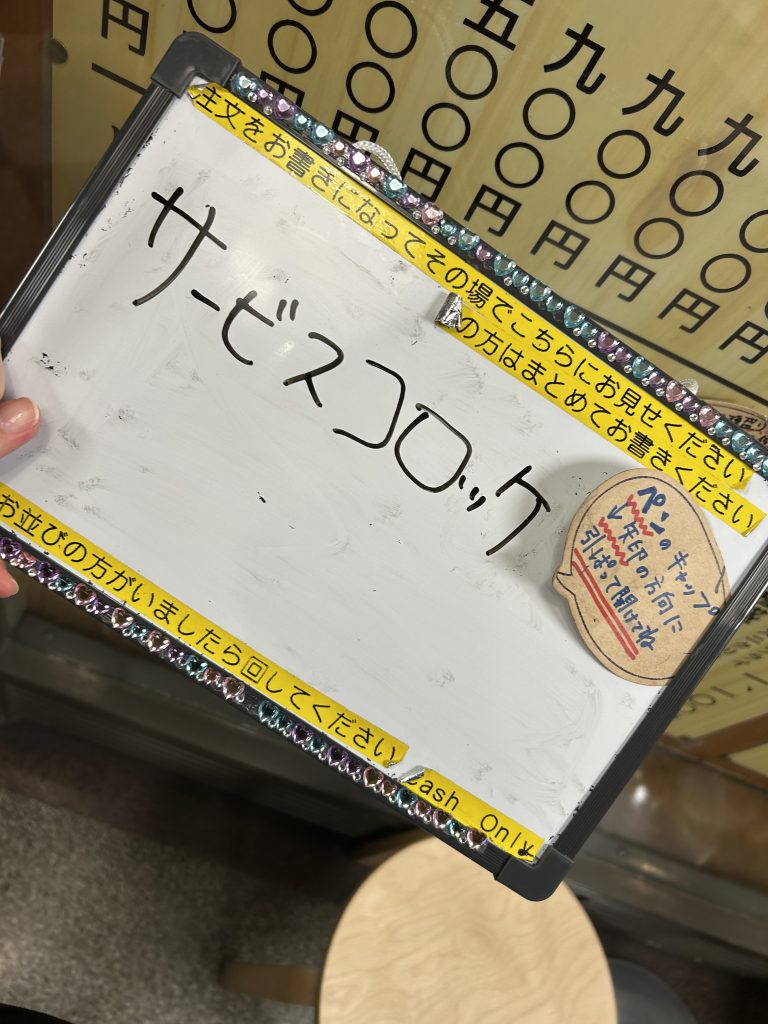 注文をお書きになってその場でこちらにお見せください
の方はまとめてお書きください
サービスコロッケ
ペンのキャップ
↓矢印の方向に
引っぱって開けてね
お並びの方がいましたら回してください
Cash Only
円一
〇〇円
〇〇円
五〇〇円
九〇〇円
九〇〇円
九〇〇円